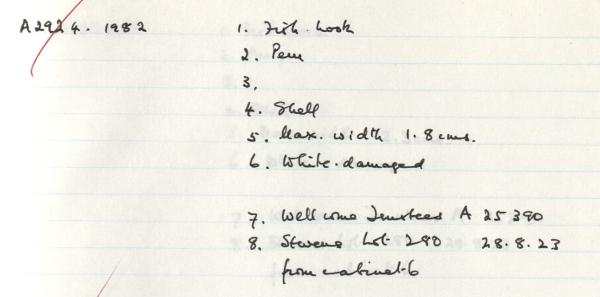 A2924.1982 1. Fish-hook
2. Peru
3.
4. Shell
5. Max. width 1.8cms.
6. White-damaged
7. Wellcome Trustees A 25390
8. Stevens Lot 290 28.8.23
from cabinet 6